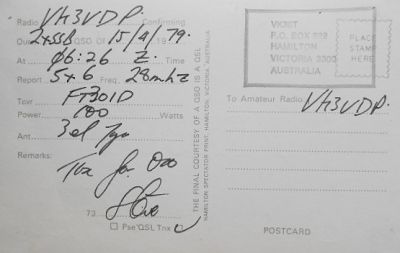 Radio VH3VDP. Confirming
Our 2xSSB QSO OF 15/4/79.
At 06:26 Z. Time
Report 5x6 Freq. 28mhz
Tcvr FT301D
Power 100 Watts
Ant. 3el Yagi
Remarks:
Tnx for QSO
73
□ Pse QSL Tnx
THE FINAL COURTESY OF A QSO IS A QSL
HAMILTON SPECTATOR PRINT, HAMILTON, VICTORIA, AUSTRALIA
VK3ST
P.O. BOX 328
HAMILTON
VICTORIA 3300
AUSTRALIA
PLACE
STAMP
HERE
To Amateur Radio VH3VDP.
POSTCARD